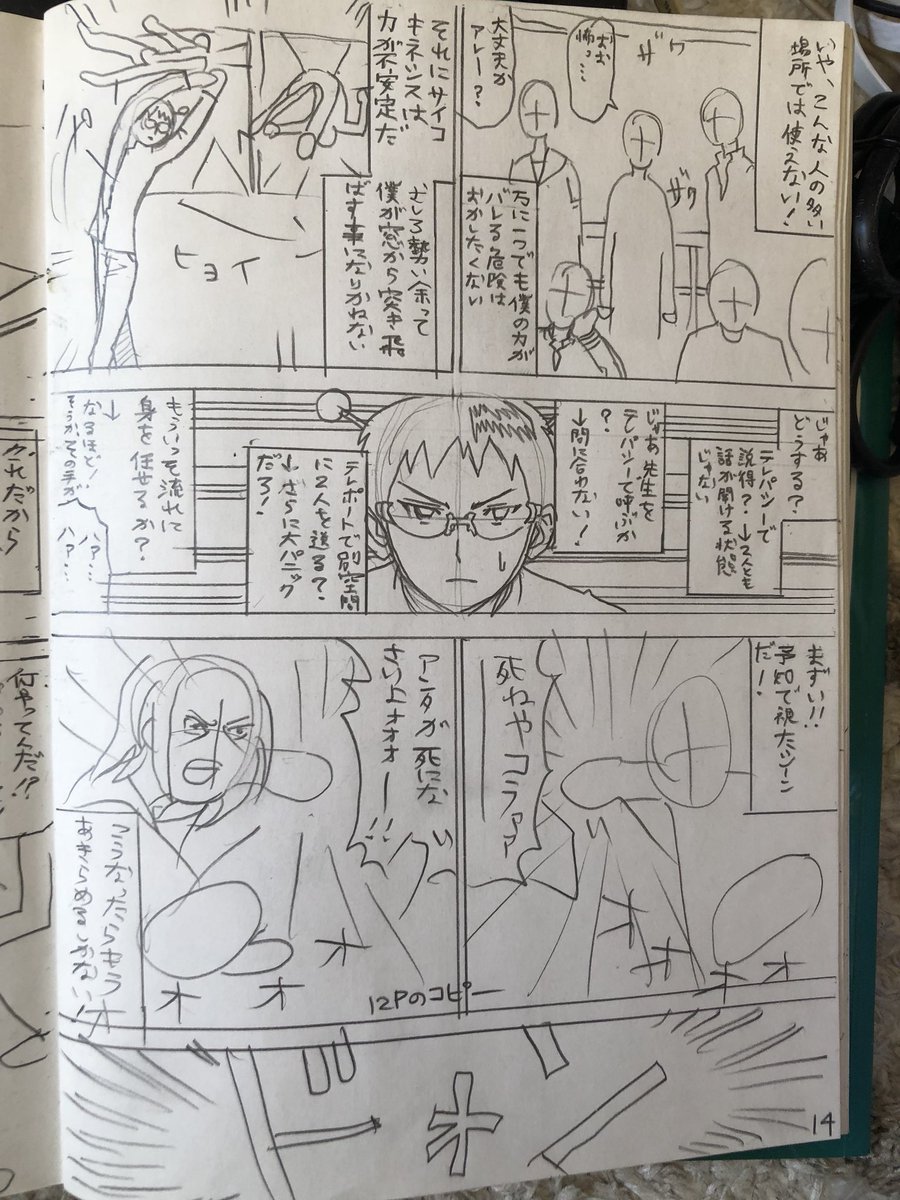 いや、こんな人の多い
場所では使えない!
ザワ
おお
怖っ…
大丈夫か
アレー?
ザワ
万に一つでも僕の力が
バレる危険は
おかしたくない
それにサイコ
キネシスは
力が不安定だ
むしろ勢い余って
僕が窓から突き飛
ばす事になりかねない
ヒョイー
じゃあ
どうする?
テレパシーで
説得?→2人とも
話が聞ける状態
じゃない
じゃあ先生を
テレパシーで呼ぶか
?
→間に合わない!
テレポートで別空間
に2人を送る?
→さらに大パニック
だろ!
もういっそ流れに
身を任せるか?
→
なるほど!
そうかその手が
ハァ…
ハァ…
まずい!!
予知で視たシーン
だ!
死ねやコラァァ
オオオオ
アンタが死にな
さいよォォォー!!
オオオオ
こうなったらもう
あきらめるしかない!
12Pのコピー
オ
14
だれだから
何やってんだ!?